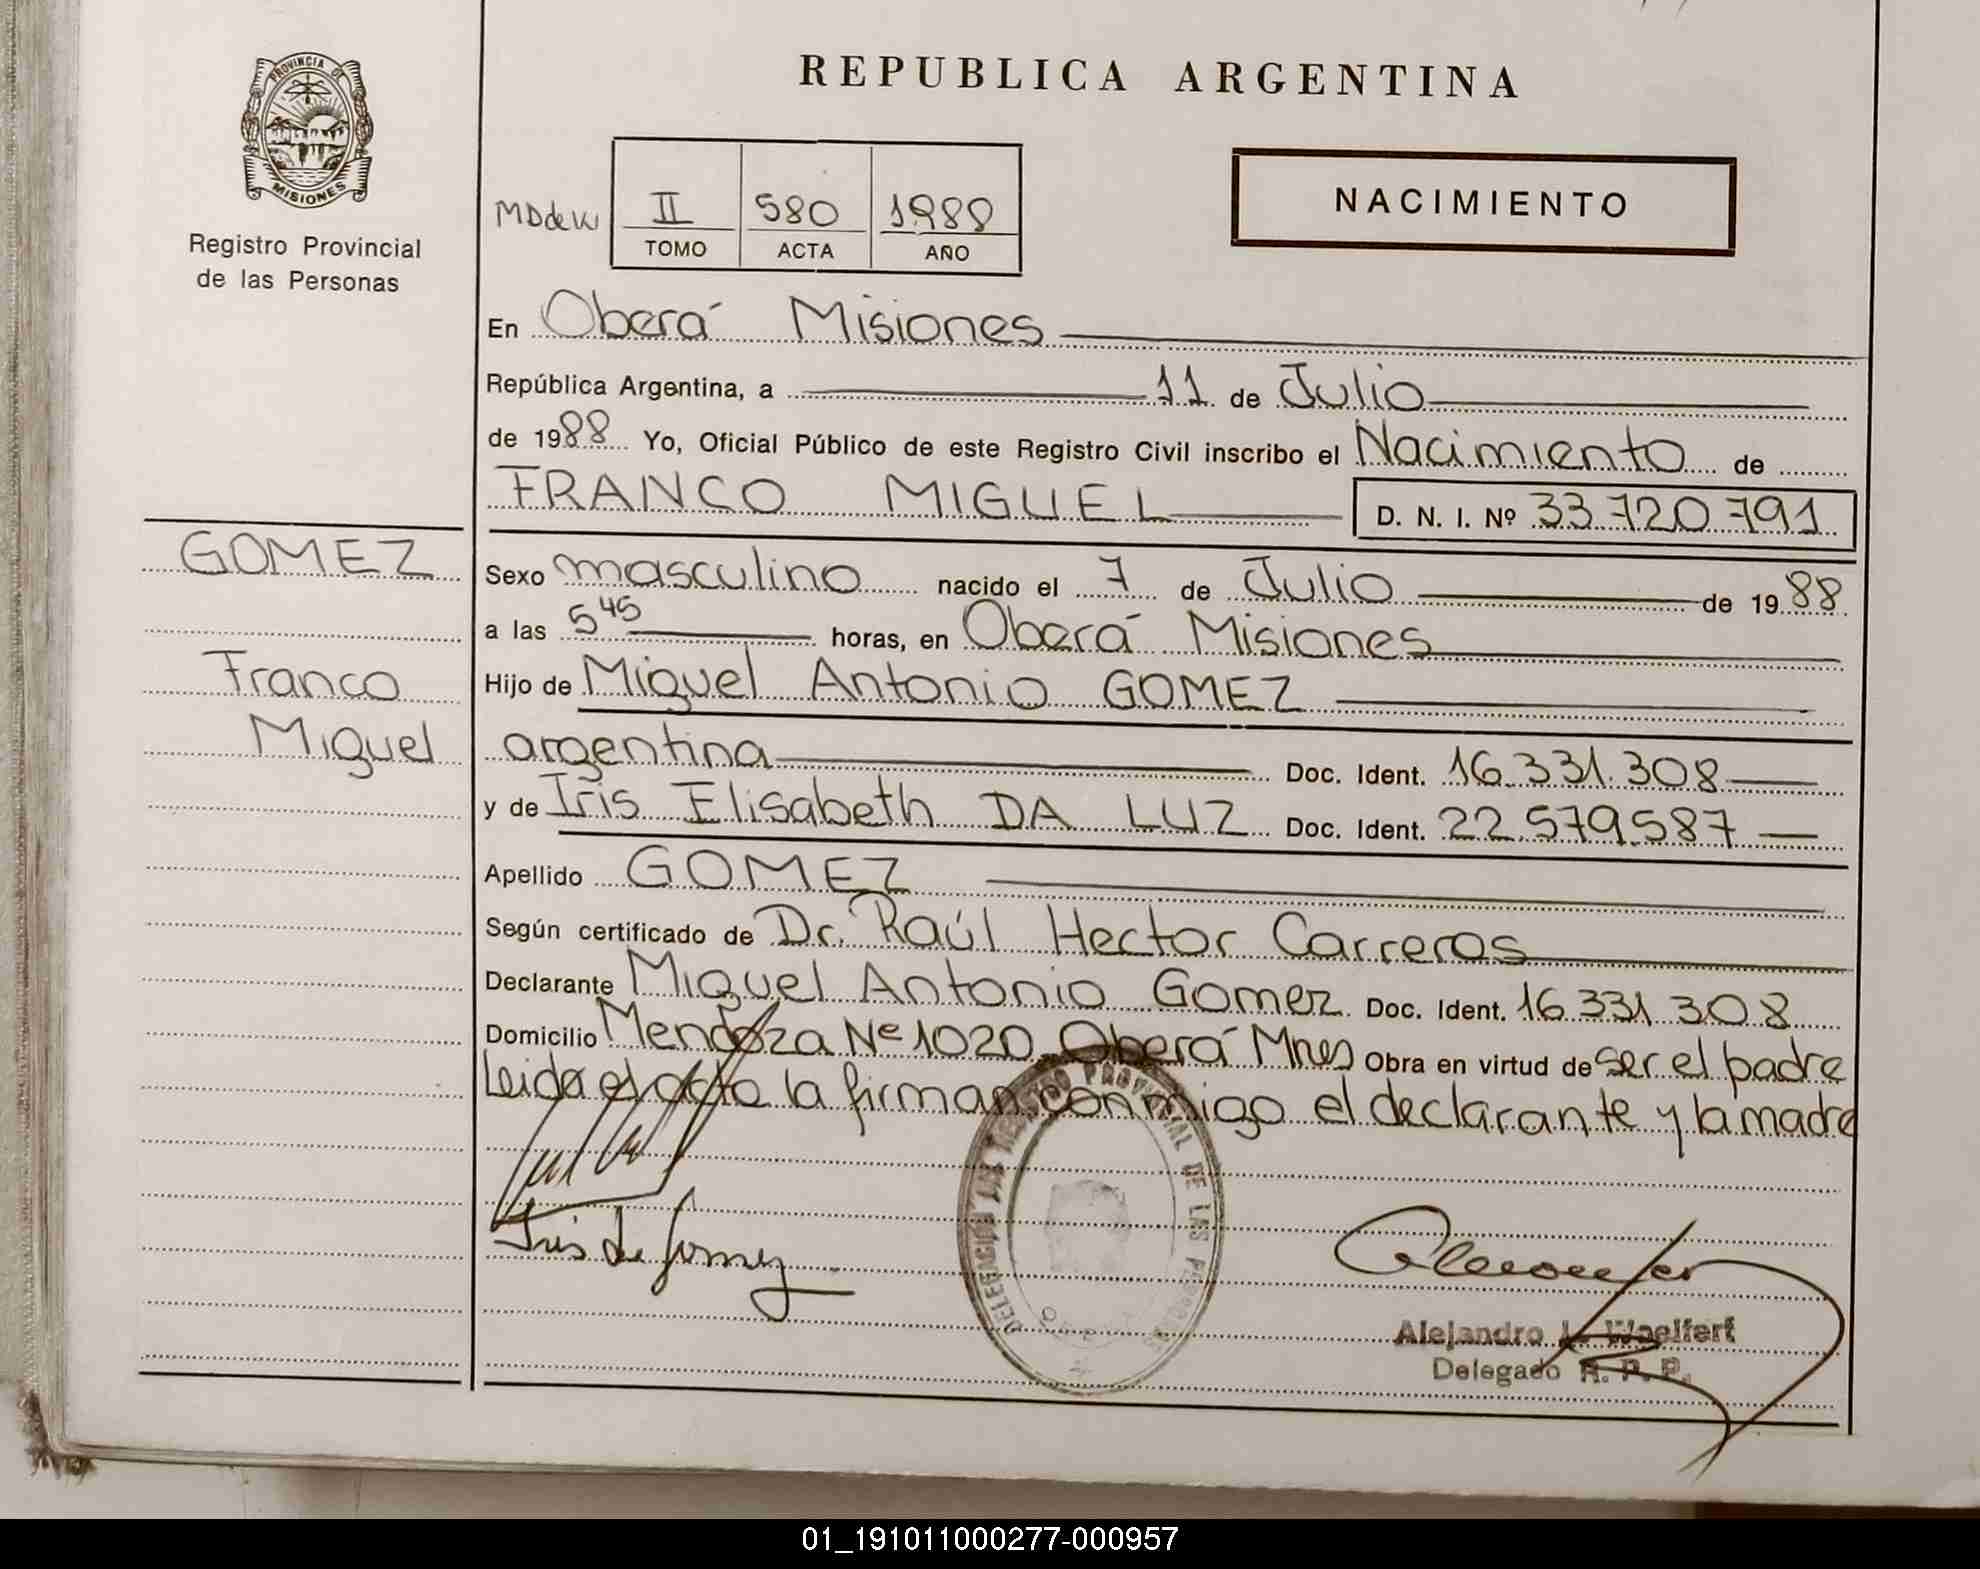 PROVINCIA DE
MISIONES
Registro Provincial
de las Personas
REPUBLICA ARGENTINA
II 580 1988
TOMO ACTA AÑO
NACIMIENTO
En Oberá Misiones
República Argentina, a 11 de Julio
de 1988 Yo, Oficial Público de este Registro Civil inscribo el Nacimiento de
FRANCO MIGUEL D. N. I. Nº 33.720.791
GOMEZ
Franco
Miguel
Sexo masculino nacido el 7 de Julio de 1988
a las 5 45 horas, en Oberá Misiones
Hijo de Miguel Antonio GOMEZ
argentina Doc. Ident. 16.331.308
y de Iris Elisabeth DA LUZ Doc. Ident. 22.579.587
Apellido GOMEZ
Según certificado de Dr. Raúl Hector Carreras
Declarante Miguel Antonio Gomez Doc. Ident. 16.331.308
Domicilio Mendoza Nº 1020 Oberá Mnes Obra en virtud de ser el padre
Leida el acta la firman conmigo el declarante y la madre
Iris de Gomez
DELEGACIÓN REGISTRO PROVINCIAL DE LAS PERSONAS
Alejandro L. Woelfert
Delegado R. P. P.
01_191011000277-000957